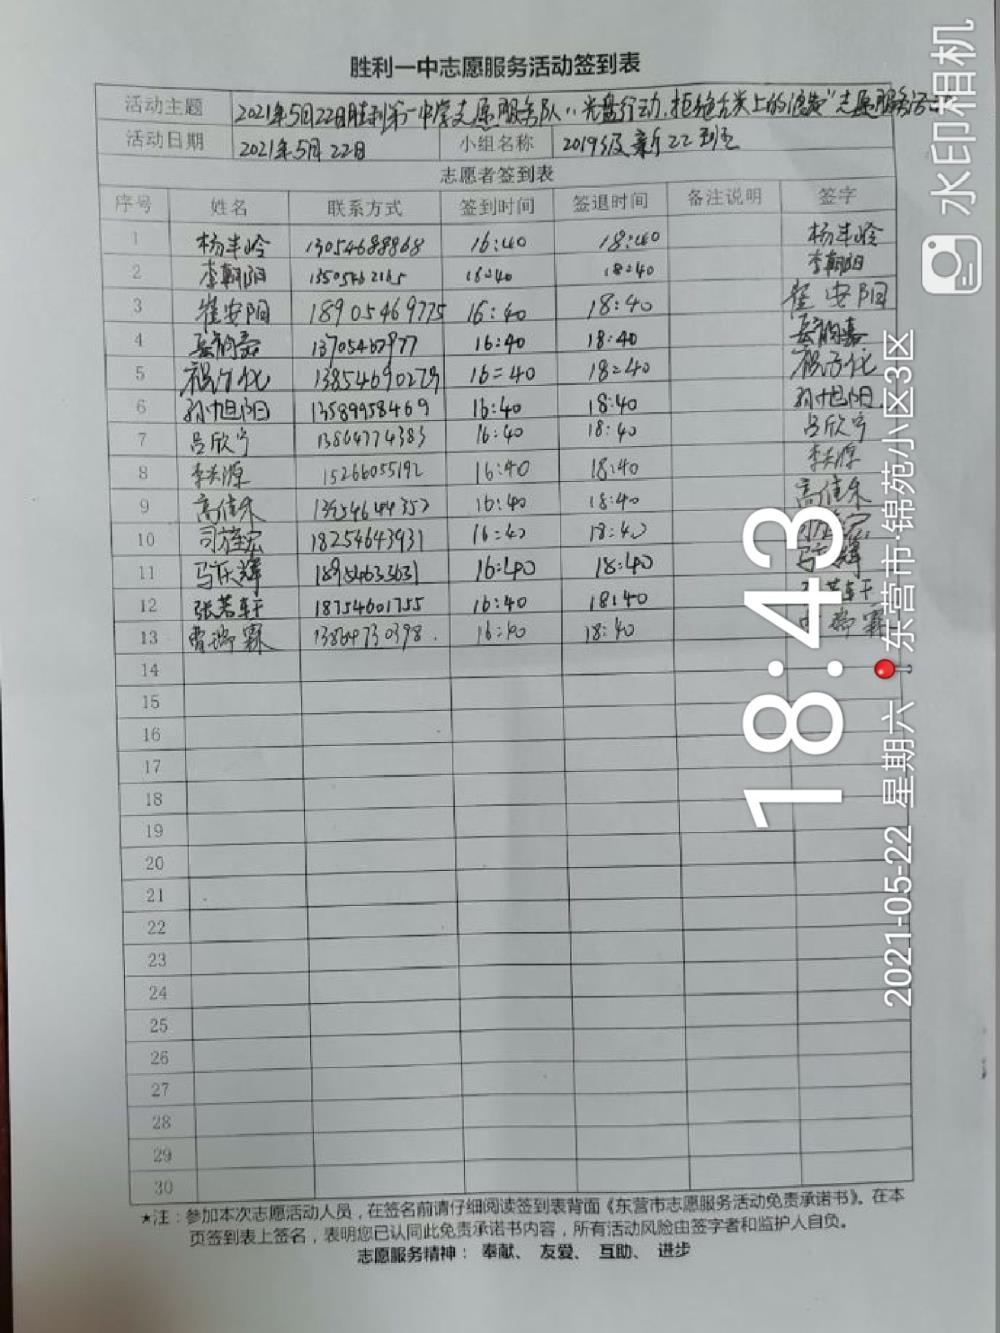 胜利一中志愿服务活动签到表
活动主题 2021年5月22日胜利第一中学志愿服务队"光盘行动,拒绝舌尖上的浪费"志愿服务活动
活动日期 2021年5月22日 小组名称 2019级新22班
志愿者签到表
序号 姓名 联系方式 签到时间 签退时间 备注说明 签字
1 杨丰岭 13054688868 16:40 18:40 杨丰岭
2 李朝阳 13505462165 16:40 18:40 李朝阳
3 崔安阳 18905469775 16:40 18:40 崔安阳
4 13705467977 16:40 18:40
5 13854690279 16:40 18:40
6 孙旭阳 13589958469 16:40 18:40 孙旭阳
7 吕欣宁 13864774383 16:40 18:40 吕欣宁
8 15266055192 16:40 18:40
9 高佳乐 16:40 18:40 高佳乐
10 18254643931 16:40 18:40
11 马庆辉 18954633631 16:40 18:40
12 张若轩 18754601755 16:40 18:40
13 曹瑞霖 13864730398 16:40 18:40
14
15
16
17
18
19
20
21
22
23
24
25
26
27
28
29
30
★注:参加本次志愿活动人员,在签名前请仔细阅读签到表背面《东营市志愿服务活动免责承诺书》。在本
页签到表上签名,表明您已认同此免责承诺书内容,所有活动风险由签字者和监护人自负。
志愿服务精神: 奉献、 友爱、 互助、 进步
18:43
2021-05-22 星期六 东营市·锦苑小区3区
水印相机